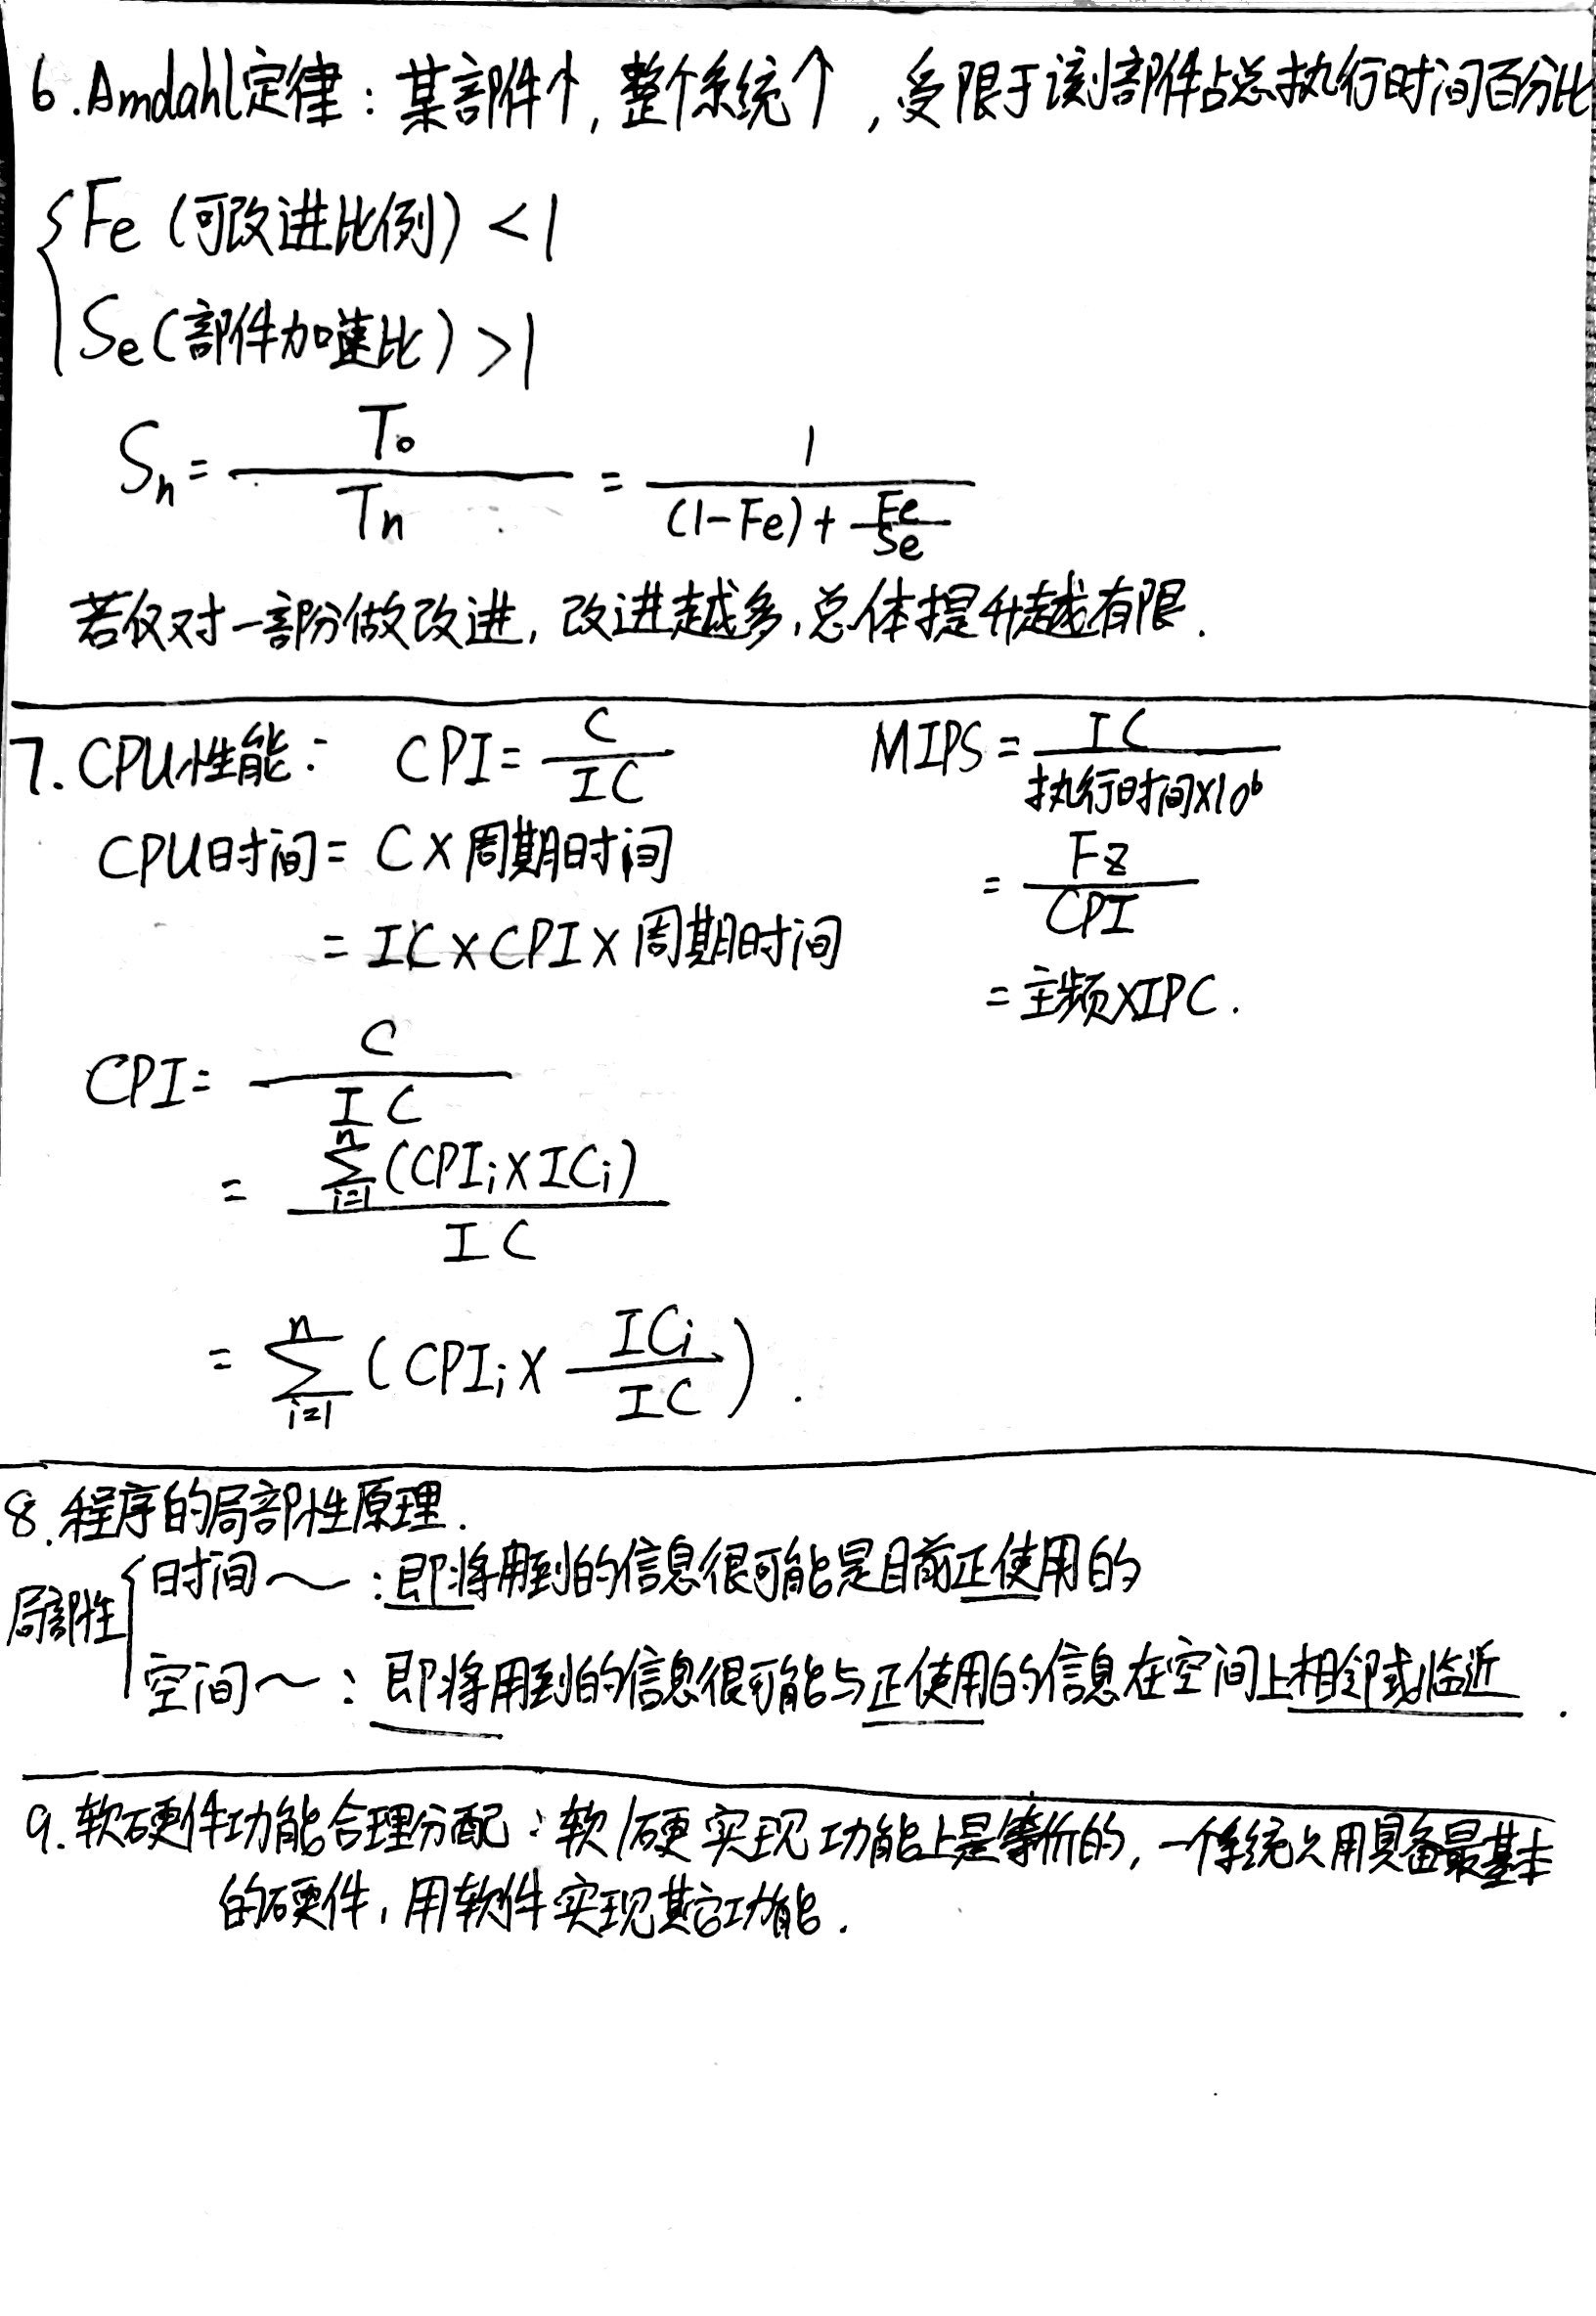 6.Amdahl定律：某部件↑,整个系统↑,受限于该部件占总执行时间百分比
{Fe (可改进比例) <1
Se(部件加速比) >1
Sn = To / Tn = 1 / ((1-Fe) + Fe/Se)
若仅对一部份做改进,改进越多,总体提升越有限.
7.CPU性能： CPI = C / IC
CPU时间 = C×周期时间
= IC×CPI×周期时间
MIPS = IC / 执行时间×10^6
= Fz / CPI
= 主频×IPC.
CPI = C / IC
= Σ(i=1→n) (CPIi×ICi) / IC
= Σ(i=1→n) (CPIi × ICi / IC).
8.程序的局部性原理.
局部性{时间～：即将用到的信息很可能是目前正使用的
空间～：即将用到的信息很可能与正使用的信息在空间上相邻或临近.
9.软硬件功能合理分配：软/硬实现功能上是等价的,一个系统只用具备最基本
的硬件,用软件实现其它功能.